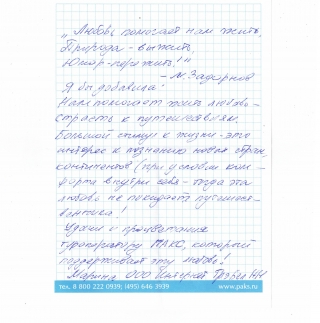 „Любовь помогает нам жить,
Природа - выжить,
Юмор - пережить!"
- М. Задорнов
Я бы добавила:
Нам помогает жить любовь -
страсть к путешествиям.
Большой стимул к жизни - это
интерес к познанию новых стран,
континентов (при условии ком-
форта внутри себя - тогда эта
любовь не покидает путешест-
венника!
Удачи и процветания
туроператору ПАКС, который
поддерживает эту любовь!
Марина ООО Тревел НН
тел. 8 800 222 0939; (495) 646 3939
www.paks.ru